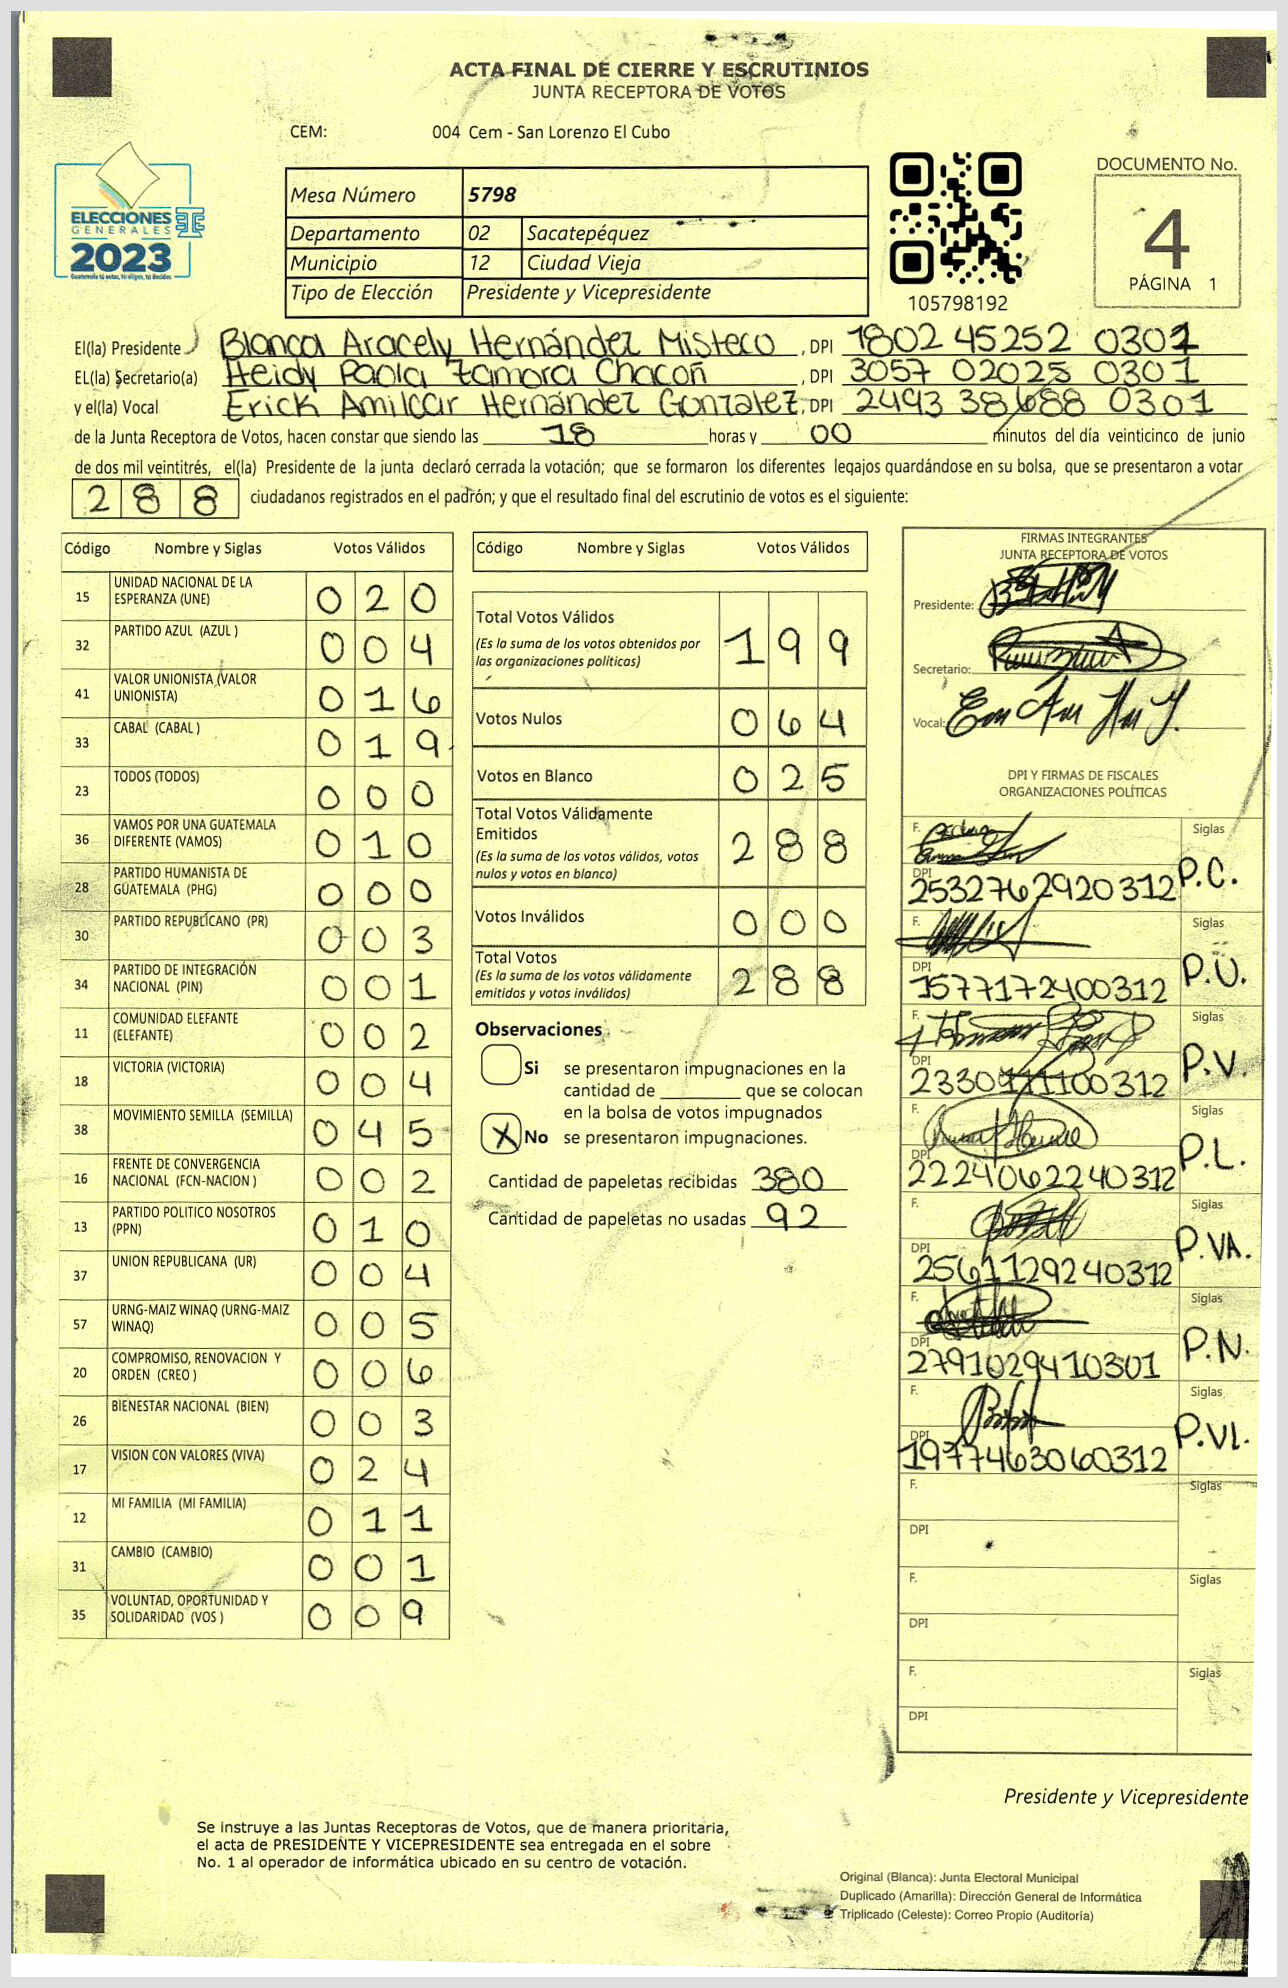 ACTA FINAL DE CIERRE Y ESCRUTINIOS
JUNTA RECEPTORA DE VOTOS
CEM: 004 Cem - San Lorenzo El Cubo
ELECCIONES
GENERALES
2023
Mesa Número 5798
Departamento 02 Sacatepéquez
Municipio 12 Ciudad Vieja
Tipo de Elección Presidente y Vicepresidente
105798192
DOCUMENTO No.
4
PÁGINA 1
El(la) Presidente Blanca Aracely Hernández Misteco, DPI 1802 45252 0301
EL(la) Secretario(a) Heidy Paola Zamora Chacón, DPI 3057 02025 0301
y el(la) Vocal Erick Amilcar Hernández Gonzalez, DPI 2493 38688 0301
de la Junta Receptora de Votos, hacen constar que siendo las 18 horas y 00 minutos del día veinticinco de junio
de dos mil veintitrés, el(la) Presidente de la junta declaró cerrada la votación; que se formaron los diferentes legajos guardándose en su bolsa, que se presentaron a votar
288 ciudadanos registrados en el padrón; y que el resultado final del escrutinio de votos es el siguiente:
Código Nombre y Siglas Votos Válidos
15 UNIDAD NACIONAL DE LA ESPERANZA (UNE) 020
32 PARTIDO AZUL (AZUL ) 004
41 VALOR UNIONISTA (VALOR UNIONISTA) 016
33 CABAL (CABAL ) 019
23 TODOS (TODOS) 000
36 VAMOS POR UNA GUATEMALA DIFERENTE (VAMOS) 010
28 PARTIDO HUMANISTA DE GUATEMALA (PHG) 000
30 PARTIDO REPUBLICANO (PR) 003
34 PARTIDO DE INTEGRACIÓN NACIONAL (PIN) 001
11 COMUNIDAD ELEFANTE (ELEFANTE) 002
18 VICTORIA (VICTORIA) 004
38 MOVIMIENTO SEMILLA (SEMILLA) 045
16 FRENTE DE CONVERGENCIA NACIONAL (FCN-NACION ) 002
13 PARTIDO POLITICO NOSOTROS (PPN) 010
37 UNION REPUBLICANA (UR) 004
57 URNG-MAIZ WINAQ (URNG-MAIZ WINAQ) 005
20 COMPROMISO, RENOVACION Y ORDEN (CREO ) 006
26 BIENESTAR NACIONAL (BIEN) 003
17 VISION CON VALORES (VIVA) 024
12 MI FAMILIA (MI FAMILIA) 011
31 CAMBIO (CAMBIO) 001
35 VOLUNTAD, OPORTUNIDAD Y SOLIDARIDAD (VOS ) 009
Código Nombre y Siglas Votos Válidos
Total Votos Válidos 199
(Es la suma de los votos obtenidos por
las organizaciones políticas)
Votos Nulos 064
Votos en Blanco 025
Total Votos Válidamente
Emitidos 288
(Es la suma de los votos válidos, votos
nulos y votos en blanco)
Votos Inválidos 000
Total Votos 288
(Es la suma de los votos válidamente
emitidos y votos inválidos)
Observaciones
Si se presentaron impugnaciones en la
cantidad de ________ que se colocan
en la bolsa de votos impugnados
X No se presentaron impugnaciones.
Cantidad de papeletas recibidas 380
Cantidad de papeletas no usadas 92
FIRMAS INTEGRANTES
JUNTA RECEPTORA DE VOTOS
Presidente:
Secretario:
Vocal:
DPI Y FIRMAS DE FISCALES
ORGANIZACIONES POLÍTICAS
F. Siglas
DPI 2532762920312 P.C.
F. Siglas
DPI 1577172400312 P.U.
F. Siglas
DPI P.V.
F. Siglas
DPI 2224062240312 P.L.
F. Siglas
DPI 2561129240312 P.VA.
F. Siglas
DPI 2791029410301 P.N.
F. Siglas
DPI 1977463060312 P.VI.
F. Siglas
DPI
F. Siglas
DPI
F. Siglas
DPI
Presidente y Vicepresidente
Se instruye a las Juntas Receptoras de Votos, que de manera prioritaria,
el acta de PRESIDENTE Y VICEPRESIDENTE sea entregada en el sobre
No. 1 al operador de informática ubicado en su centro de votación.
Original (Blanca): Junta Electoral Municipal
Duplicado (Amarilla): Dirección General de Informática
Triplicado (Celeste): Correo Propio (Auditoría)